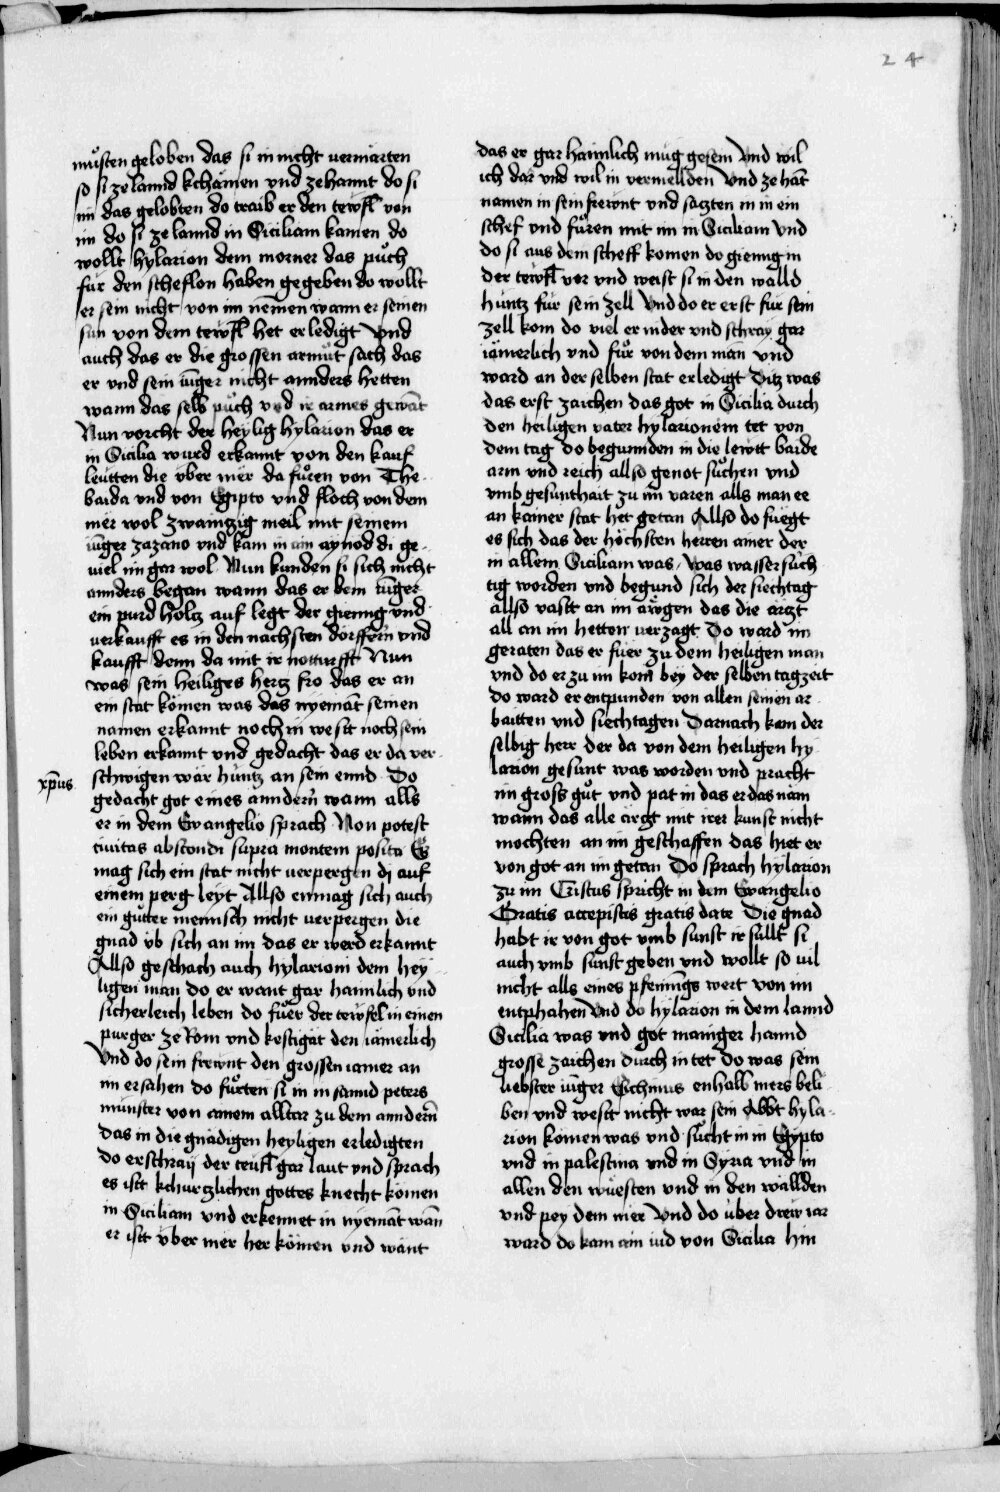 24
muͦsten geloben das si in nicht vermarten
so si ze lannd kchamen vnd ze hannt do si
im das gelobten do traib er den tewfl von
im do si ze lannd in Siciliam kamen do
wollt hylarion dem morner das puͦch
fur den scheflon haben gegeben do wollt
er sein nicht von im nemen wann er seinen
sun von dem tewfl het erledigt Vnd
auch das er die grossen armuͦt sach das
er vnd sein iunger nicht annders hetten
wann das selb puͦch vnd ir armes gewāt
Nun vorcht der heylig hylarion das er
in Sicilia wurd erkannt von den kauf
leutten die vber mer da fuͦren von The-
baida vnd von Egipto vnd floch von dem
mer wol zwainzig meil mit seinem
iūger zazano vnd kam in ain aynod di ge-
uiel im gar wol Nun kunden si sich nicht
annders began wann das er dem iūger
ein purd holcz auf legt der gieng vnd
verkaufft es in den nachsten dorffern vnd
kaufft denn da mit ir notturfft Nun
was sein heiliges hertz fro das er an
ein stat komen was das nyemāt seinen
namen erkannt noch in wesst noch sein
leben erkannt vnd gedacht das er da ver-
schwigen war huntz an sein ennd Do
xp̄us
gedacht got eines anndern wann alls
er in dem Ewangelio sprach Non potest
ciuitas abscondi supra montem posita Es
mag sich ein stat nicht verpergen di auf
einem perg leyt Allso enmag sich auch
ein guͦtter mennsch nicht verpergen die
gnad vb sich an im das er werd erkannt
Allso geschach auch hylarioni dem hey-
ligen man do er want gar haimlich vnd
sicherleich leben do fuͦr der tewfel in einen
purger ze Rom vnd kestigat den iamerlich
Vnd do sein frewnt den grossen iamer an
im ersahen do fuͦrten si in in sannd peters
munster von ainem alltar zu dem anndern
das in die gnadigen heyligen erledigten
do erschray der teufl gar laut vnd sprach
es istt kchurczlichen gottes knecht komen
in Siciliam vnd erkennet in nyemāt wān
er istt vber mer her komen vnd want
das er gar haimlich mug gesein Vnd wil
ich dar vnd wil in vermellden Vnd ze hāt
namen in sein frewnt vnd saczten in in ein
schef vnd fuͦren mit im in Siciliam Vnd
do si aus dem scheff komen do gienng in
der tewfl vor vnd weist si in den walld
huntz fur sein zell Vnd do er erst fur sein
zell kom do viel er nider vnd schray gar
iamerlich vnd fuͦr von dem man vnd
ward an der selben stat erledigt Ditz was
das erst zaichen das got in Sicilia durch
den heiligen vater hylarionem tet von
dem tag do begunnden in die lewtt baide
arm vnd reich allso genot suͦchen vnd
vmb gesunthait zu im varen alls man ee
an kainer stat het getan Allso do fuegt
es sich das der hochsten herren ainer der
in allem Siciliam was, Was wassersuch
tig worden vnd begund sich der siechtag
allso vastt an im awgen das die arczt
all an im hetten verzagt Do ward im
geraten das er fuer zu dem heiligen man
vnd do er zu im kom bey der selben tagzeit
do ward er entpunden von allen seinen ar-
baitten vnd siechtagen Darnach kam der
selbig herr der da von dem heiligen hy-
larion gesunt was worden vnd pracht
im gross guͦt vnd pat in das er das nam
wann das alle arczt mit irer kunst nicht
mochten an im geschaffen das hiet er
von got an im getan Do sprach hylarion
zu im Cristus spricht in dem Ewangelio
Gratis accepistis gratis date Die gnad
habt ir von got vmb sunst ir sullt si
auch vmb sunst geben vnd wollt so vil
nicht alls eines pfennīgs wert von im
entphahen Vnd do hylarion in dem lannd
Sicilia was vnd got maniger hannd
grosse zaichen durch in tet do was sein
liebster iūger Eichinus enhalb mers beli-
ben vnd wesst nicht war sein Abbt hyla-
rion komen was vnd suͦcht in in Egypto
vnd in palestina vnd in Syria vnd in
allen den wuesten vnd in den wallden
vnd pey dem mer Vnd do uber drew iar
ward do kam ain iud von Sicilia hin